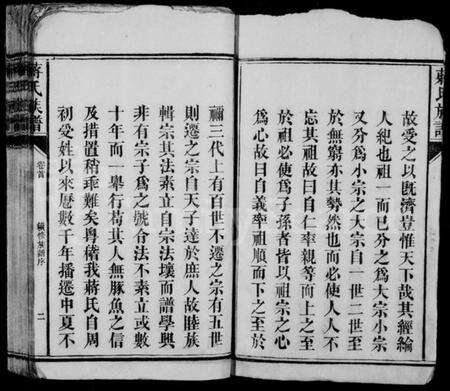 蔣氏族譜
故愛之以既濟豈惟天下哉其經綸
人紀也祖一而已分之為大宗小宗
又分為小宗之大宗自一世二世至
於無窮亦其勢然也而必使人人不
忘其祖故曰自仁率親等而上之至
於祖必使為子孫者皆以祖宗之心
為心故曰自義率祖順而下之至於
禰三代上有百世不遷之宗有五世
則遷之宗自天子達於庶人故睦族
輯宗其法素立自宗法壞而譜學興
非有宗子為之號令法不素立或數
十年而一舉行苟其人無豚魚之信
及措置稍乖難矣粵稽我蔣氏自周
初受姓以來歷數千年播遷中夏不
蔣氏族譜
卷首
譜序
二